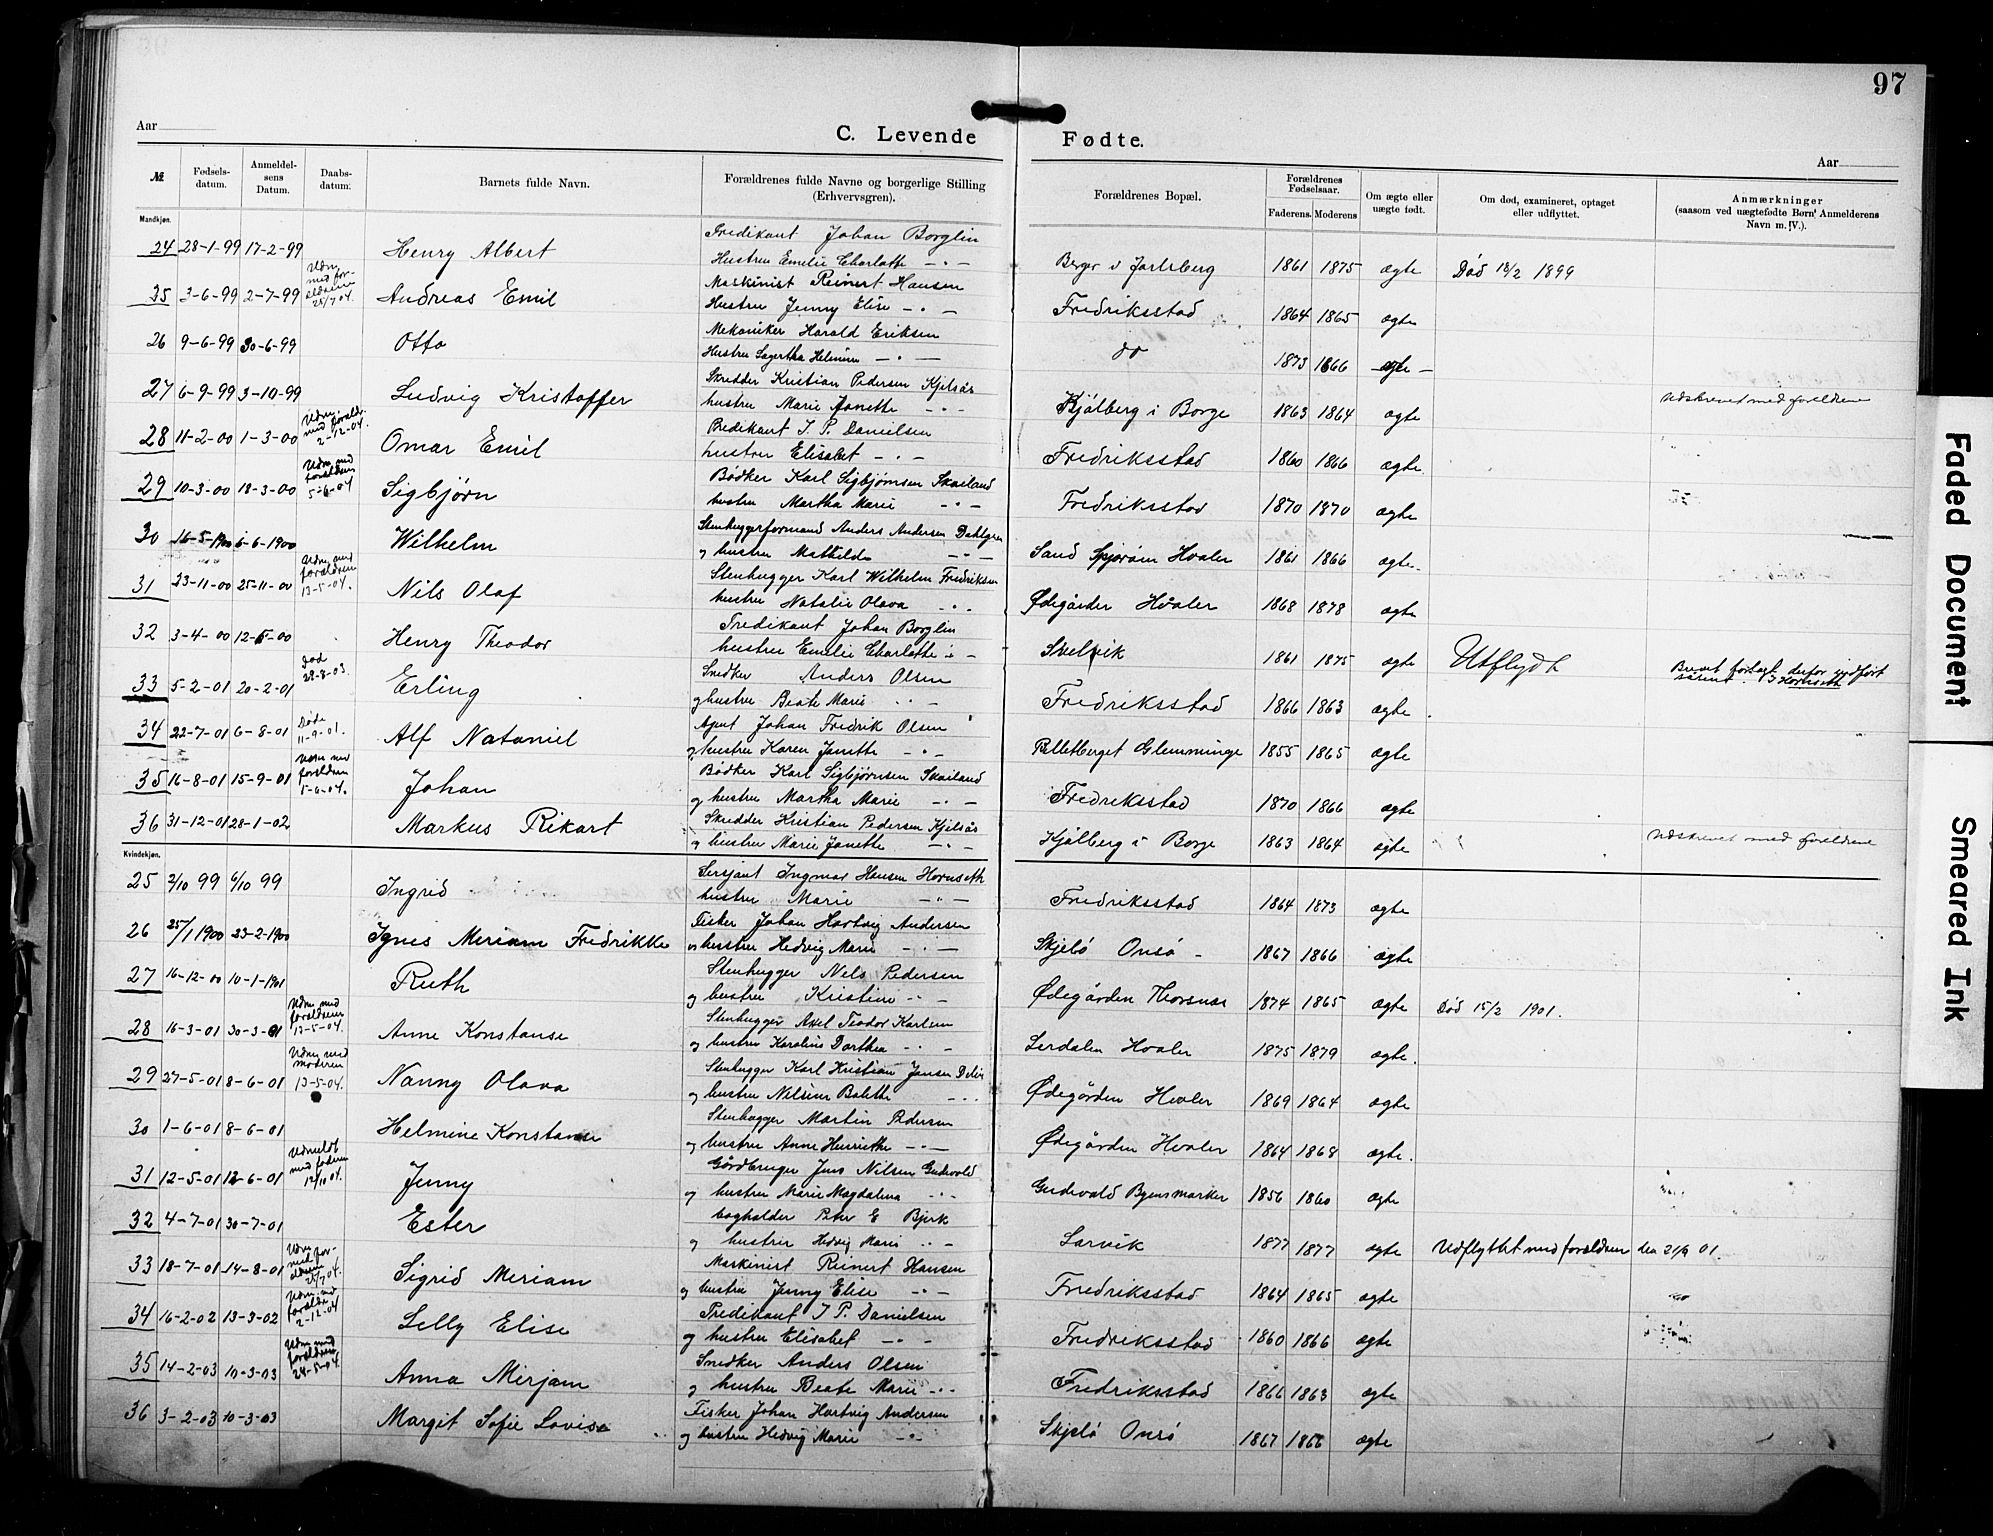 97
Aar
C. Levende Fødte.
Aar
№
Fødsels-datum.
Anmeldel-sens Datum.
Daabs-datum.
Barnets fulde Navn.
Forældrenes fulde Navne og borgerlige Stilling (Erhvervsgren).
Forældrenes Bopæl.
Forældrenes Fødselsaar.
Faderens.
Moderens
Om ægte eller uægte født.
Om død, examineret, optaget eller udflyttet.
Anmærkninger (saasom ved uægtefødte Børn: Anmelderens Navn m. V.).
Mandkjøn.
24 28-1-99 17-2-99 Henry Albert Predikant Johan Borglin Berger i Jarlsberg 1861 1875 ægte Død 18/2 1899
Hustru Emelie Charlotte - " -
35 3-6-99 2-7-99 Udm. med for-ældrene 25/7 04. Andreas Emil Maskinist Reinert Hansen Fredriksstad 1864 1865 ægte
Hustru Jenny Elise - " -
26 9-6-99 30-6-99 Otto Mekaniker Harald Eriksen do 1873 1866 ægte
Hustru Helmine - " -
27 6-9-99 3-10-99 Ludvig Kristoffer Skredder Kristian Pedersen Kjelsås Kjølberg i Borge 1863 1864 ægte Udskrevet med foreldrene
hustru Marie Janette - " -
28 11-2-00 1-3-00 Udm. med foræld. 2-12-04. Omar Emil Predikant I. P. Danielsen Fredriksstad 1860 1866 ægte
hustru Elisabet - " -
29 10-3-00 18-3-00 Udm med forældren 5-6-04 Sigbjørn Bødker Karl Sigbjørnsen Skailand Fredriksstad 1870 1870 ægte
hustru Martha Marie - " -
30 16-5-1900 6-6-1900 Wilhelm Stenhuggerformand Anders Andersen Dahlgren Sand Spjærøen Hvaler 1861 1866 ægte
og hustru Mathilde - " -
31 23-11-00 25-11-00 Udm. med forældren 13-5-04. Nils Olaf Stenhugger Karl Wilhelm Fredriksen Ødegården Hvaler 1868 1878 ægte
hustru Natalie Olava - " -
32 3-4-00 12-5-00 Henry Theodor Predikant Johan Borglin Svelvik 1861 1875 ægte Utflydt Brevet forlagt derfor indført senere. I Hornseth
hustru Emelie Charlotte - " -
33 5-2-01 20-2-01 Død 29-8-03. Erling Snedker Anders Olsen Fredriksstad 1866 1863 ægte
og hustru Beate Marie - " -
34 22-7-01 6-8-01 Døde 11-9-01. Alf Nataniel Agent Johan Fredrik Olsen Glemminge 1855 1865 ægte
og hustru Karen Janette - " -
35 16-8-01 15-9-01 Udm med forældren 5-6-04. Johan Bødker Karl Sigbjørnsen Skailand Fredriksstad 1870 1866 ægte
og hustru Martha Marie - " -
36 31-12-01 28-1-02 Markus Rikart Skredder Kristian Pedersen Kjelsås Kjølberg i Borge 1863 1864 ægte Udskrevet med foreldrene
og hustru Marie Janette - " -
Kvindekjøn.
25 2/10 99 6/10 99 Ingrid Sersjant Ingmar Hansen Hornseth Fredriksstad 1864 1873 ægte
hustru Marie - " -
26 25/1 1900 23-2-1900 Ignes Meriam Fredrikke Fisker Johan Hartvig Andersen Skjelø Onsø 1867 1866 ægte
og hustru Hedvig Marie - " -
27 16-12-00 10-1-1901 Ruth Stenhugger Nels Pedersen Ødegården Thorsnæs 1874 1865 ægte Død 15/2 1901.
og hustru Kristine - " -
28 16-3-01 30-3-01 Udm med forældren 13-5-04. Anne Konstanse Stenhugger Axel Teodor Karlsen Lerdalen Hvaler 1875 1879 ægte.
og hustru Karoline Dorthea - " -
29 27-5-01 8-6-01 Udm med moderen 13-5-04. Nanny Olava Stenhugger Karl Kristian Jansen Ødegården Hvaler 1869 1864 ægte
og hustru Nelsine Bolette - " -
30 1-6-01 8-6-01 Helmine Konstanse Stenhugger Martin Pedersen Ødegården Hvaler 1864 1868 ægte.
og hustru Anne Henriette - " -
31 12-5-01 12-6-01 Udmeldt med faderen 12/10 04. Jenny Gårdbruger Jens Nilsen Gudevold Gudevold Byensmarker 1856 1860 ægte
og hustru Marie Magdalena - " -
32 4-7-01 30-7-01 Ester bogholder Peter E Bjerk Larvik 1877 1877 ægte Udflyttet med forældren den 21/9 01.
og hustru Hedvig Marie - " -
33 18-7-01 14-8-01 Udm. for-ældren med 25/7 04. Sigrid Meriam Maskinist Reinert Hansen Fredriksstad 1864 1865 ægte
og hustru Jenny Elise - " -
34 16-2-02 13-3-02 Udm. med foræld 2-12-04 Lelly Elise Predikant I P. Danielsen Fredriksstad 1860 1866 ægte
og hustru Elisabet - " -
35 14-2-03 10-3-03 Udm med forældren 24-5-04. Anna Mirjam Snedker Anders Olsen Fredriksstad 1866 1863 ægte
og hustru Beate Marie - " -
36 3-2-03 10-3-03 Margit Sofie Lovise Fisker Johan Hartvig Andersen Skjelø Onsø 1867 1866 ægte
og hustru Hedvig Marie - " -
Faded Document
Smeared Ink